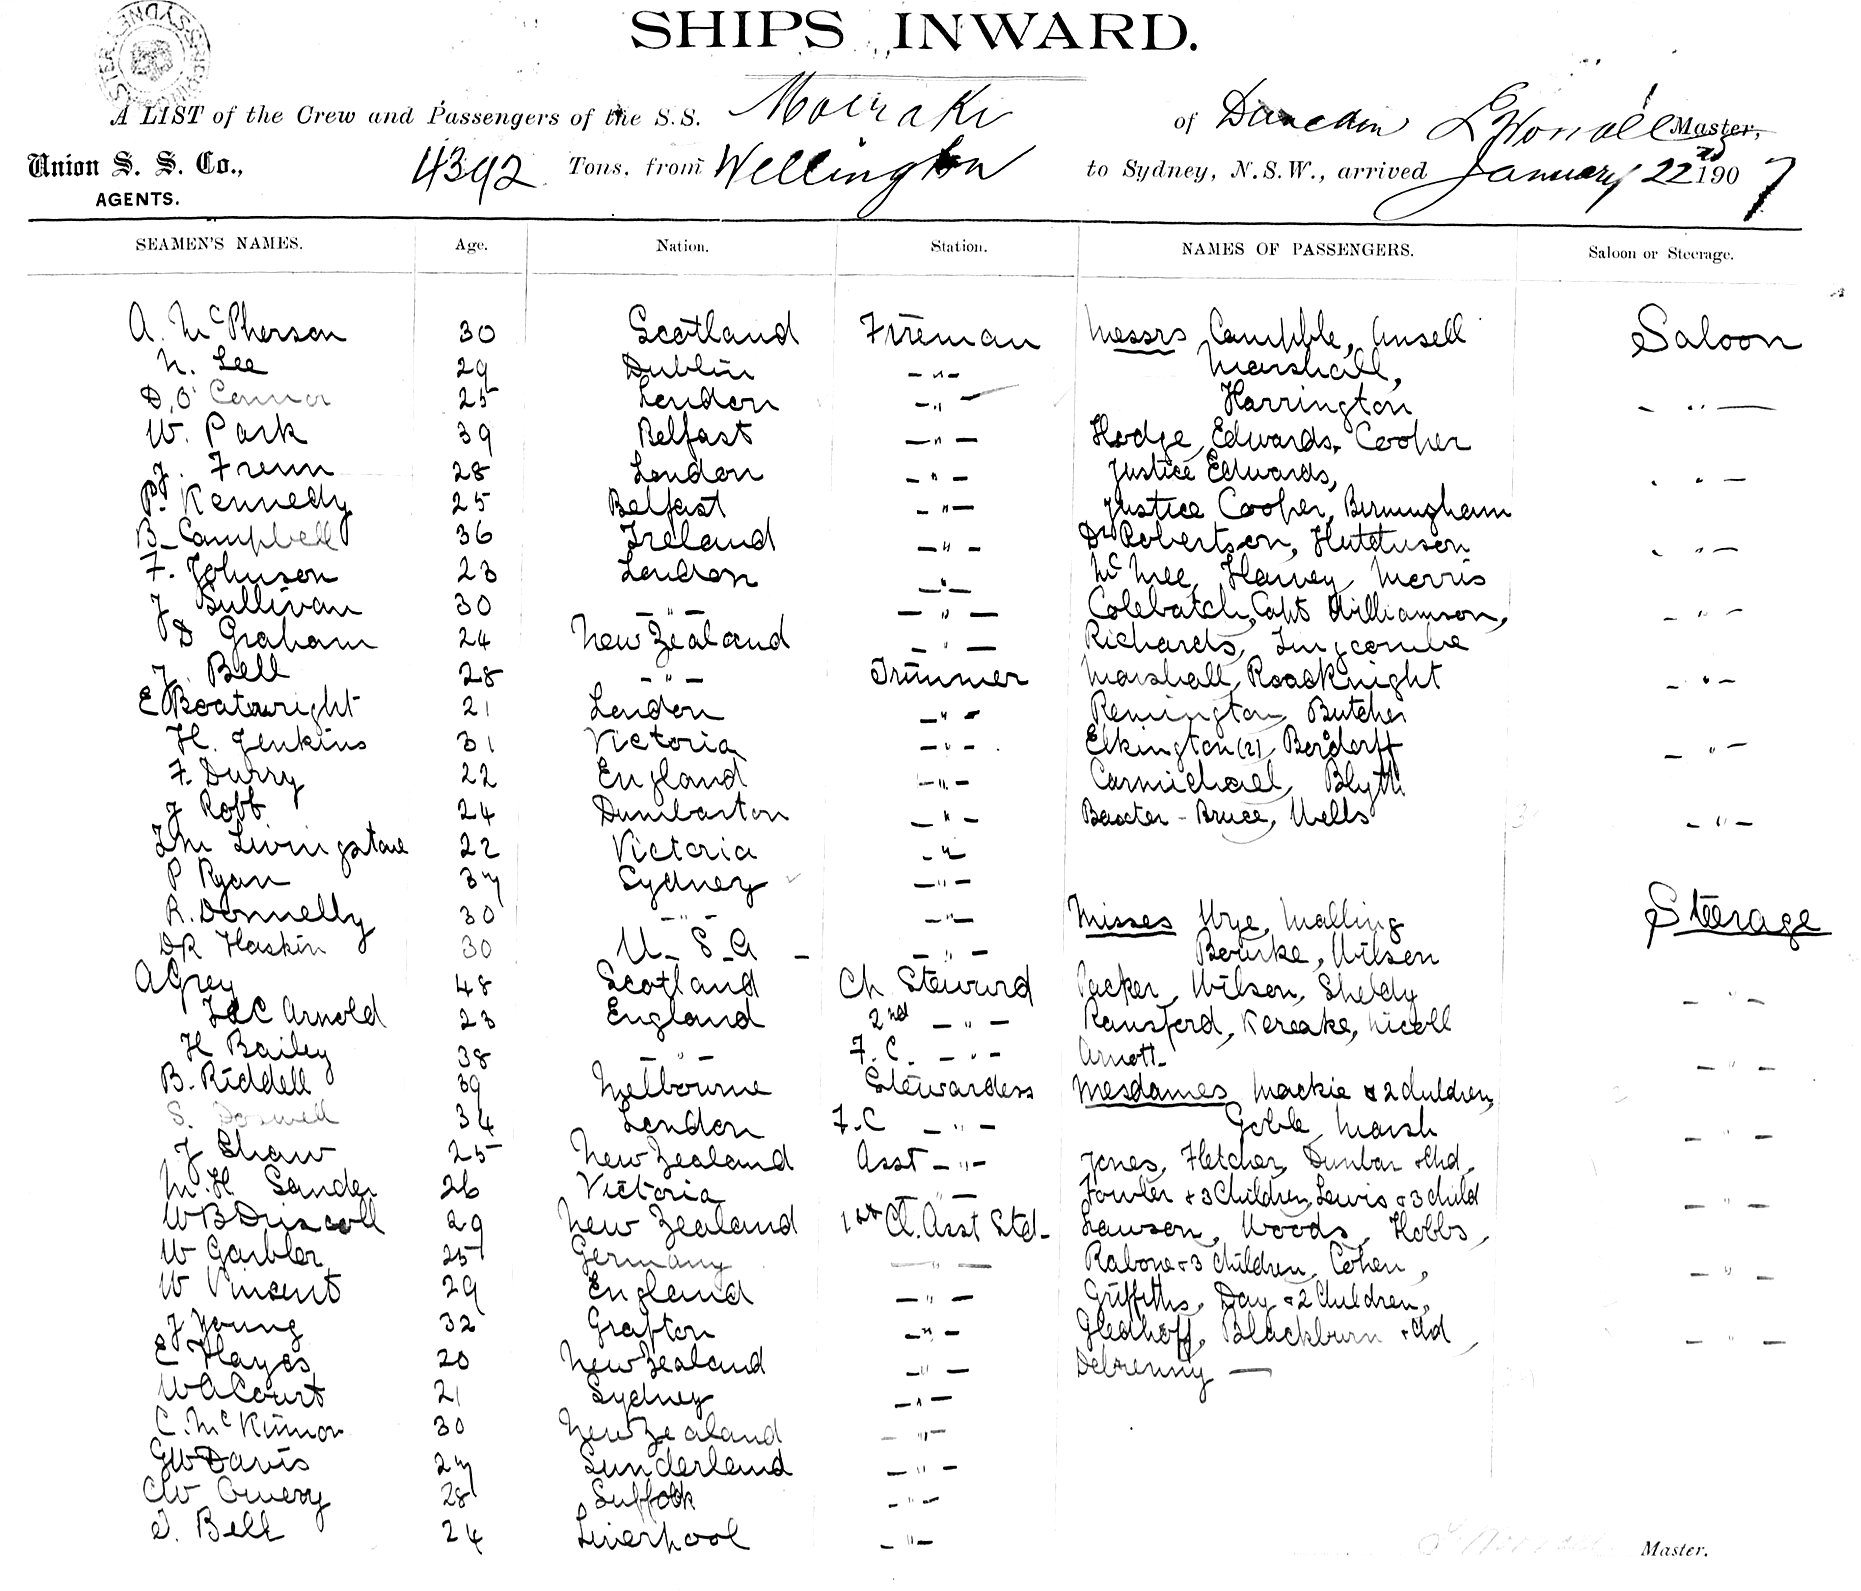 SHIPS INWARD.
A LIST of the Crew and Passengers of the S.S. Moeraki of Dunedin Master,
Union S. S. Co., 4392 Tons, from Wellington to Sydney, N.S.W., arrived January 22nd 1907
AGENTS.
SEAMEN'S NAMES. Age. Nation. Station. NAMES OF PASSENGERS. Saloon or Steerage.
A. McPherson 30 Scotland Fireman Messrs Campble, Ansell Saloon
N. Lee 29 Dublin -"- Marshall,
D. O'Connor 25 London -"- Harrington - " -
W. Park 39 Belfast -"- Hodge, Edwards, Cooper
J. Frenn 28 London -"- Justice Edwards, - " -
P. Kennedy 25 Belfast -"- Justice Cooper, Birmingham
B. Campbell 36 Ireland -"- Dr Robertson, Hutchison - " -
F. Johnson 23 London -"- Harvey, Morris
J Sullivan 30 -"- -"- Colebatch, Capt Williamson, - " -
D Graham 24 New Zealand -"- Richards,
J. Bell 28 -"- Trimmer Marshall, Roadknight - " -
E Boatwright 21 London -"- Remington, Butcher
H. Jenkins 31 Victoria -"- Elkington (2), - " -
F. Durry 22 England -"- Carmichael, Blyth
J Robb 24 Dumbarton -"- Baxter - Bruce, Wells - " -
Livingstone 22 Victoria -"-
P Ryan 37 Sydney -"-
R. Donnelly 30 -"- -"- Misses Malling Steerage
DR Haskin 30 U-S-A - -"- Bourke, Wilson
A Grey 48 Scotland Ch Steward Packer, Wilson, Sheldy - " -
Arnold 23 England 2nd -"- Ransford, Kereake, Nicoll
H Bailey 38 -"- F.C. -"- Arnott - " -
B. Riddell 39 Melbourne Stewardess Mesdames Mackie & 2 children,
S. Doswell 34 London F.C -"- Goble, Marsh - " -
J Shaw 25 New Zealand Asst -"- Jones, Fletcher, Dunbar & chd,
M.H Sander 26 Victoria -"- Fowler & 3 Children, Lewis & 3 child - " -
W B Driscoll 29 New Zealand 1st Cl. Asst Std- Lawson, Woods, Hobbs,
W Garbler 25 Germany -"- Rabone & 3 children, Cohen, - " -
W Vincent 29 England -"- Griffiths, Day & 2 Children,
J Young 32 Grafton -"- Gledhoff, Blackburn & chd, - " -
E Hayes 20 New Zealand -"- Delrenny —
W A Court 21 Sydney -"-
C. McKinnon 30 New Zealand -"-
GW Davis 27 Sunderland -"-
CW Omery 28 Suffolk -"-
D. Bell 24 Liverpool -"-
Master.